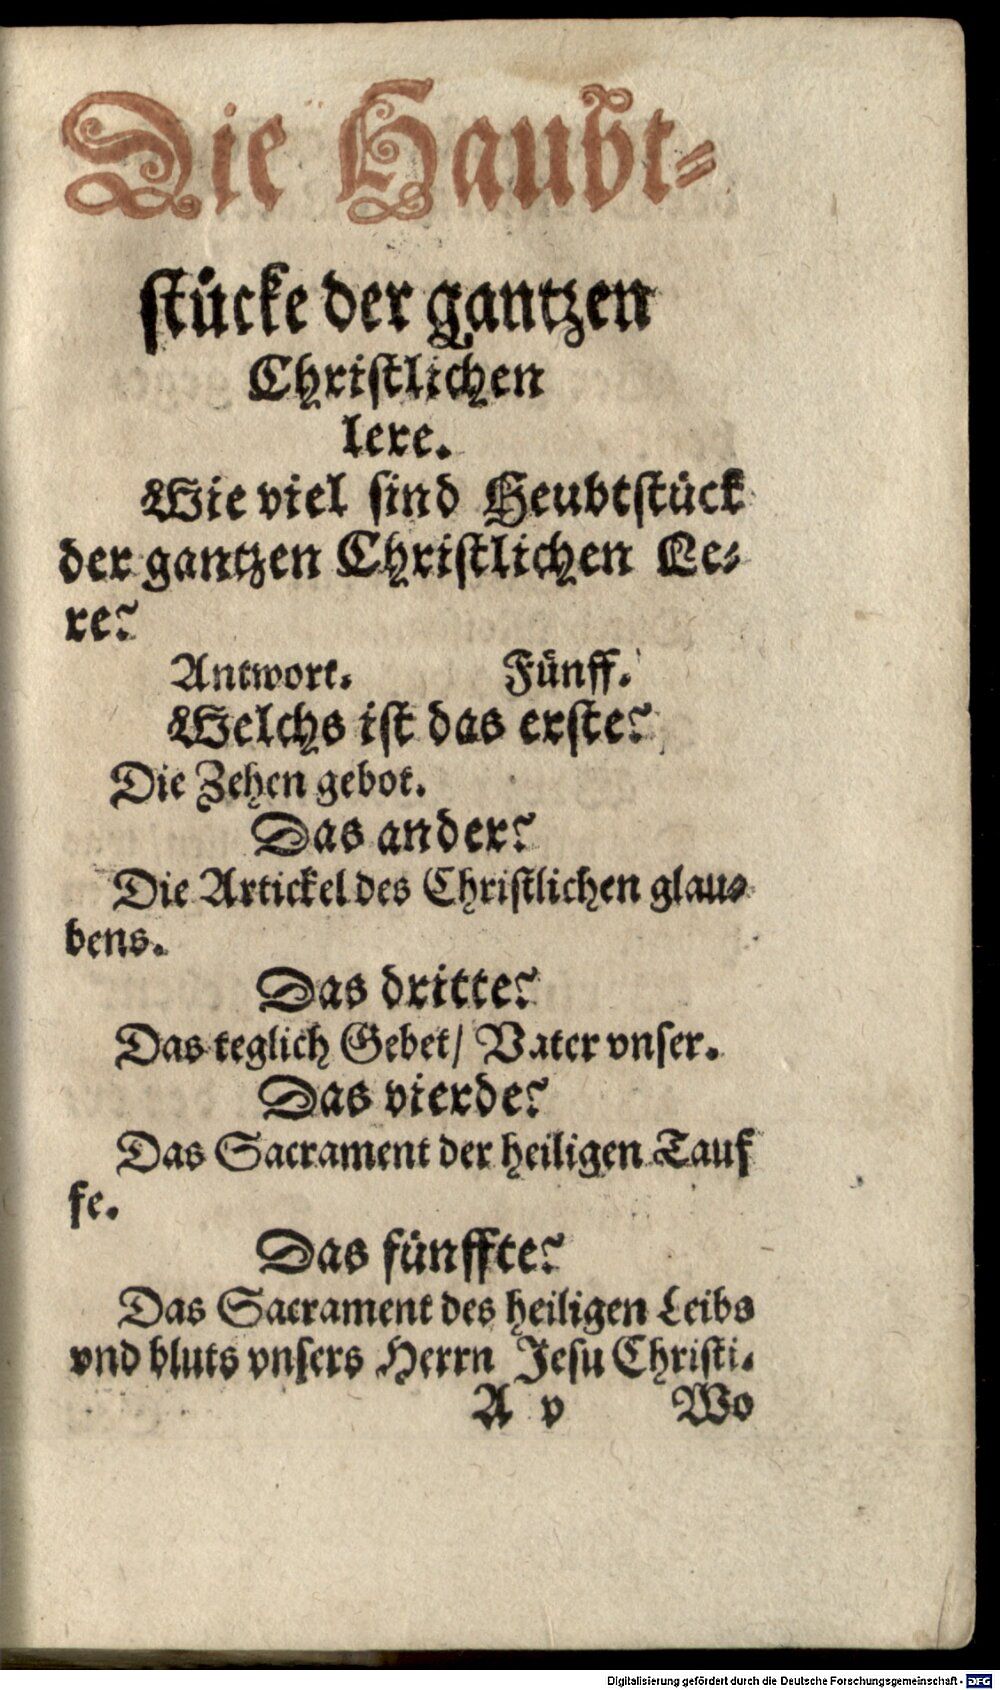 Die Haubt-
stücke der gantzen
Christlichen
lere.
Wie viel sind Heubtstück
der gantzen Christlichen Le-
re?
Antwort. Fünff.
Welchs ist das erste?
Die Zehen gebot.
Das ander?
Die Artickel des Christlichen glau-
bens.
Das dritte?
Das teglich Gebet/ Vater vnser.
Das vierde?
Das Sacrament der heiligen Tauf
fe.
Das fünffte?
Das Sacrament des heiligen Leibs
vnd bluts vnsers Herrn Jesu Christi.
A v Wo
Digitalisierung gefördert durch die Deutsche Forschungsgemeinschaft - DFG